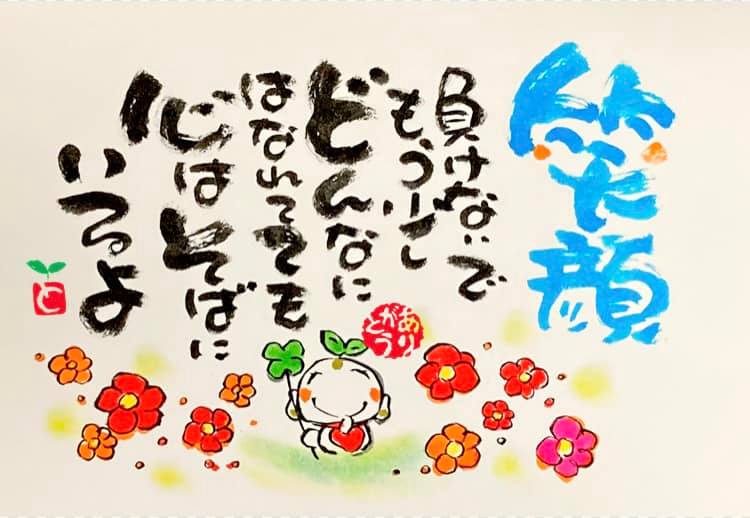 笑顔
負けないで
もう少し
どんなに
はなれてても
心はそばに
いるよ
ありがとう